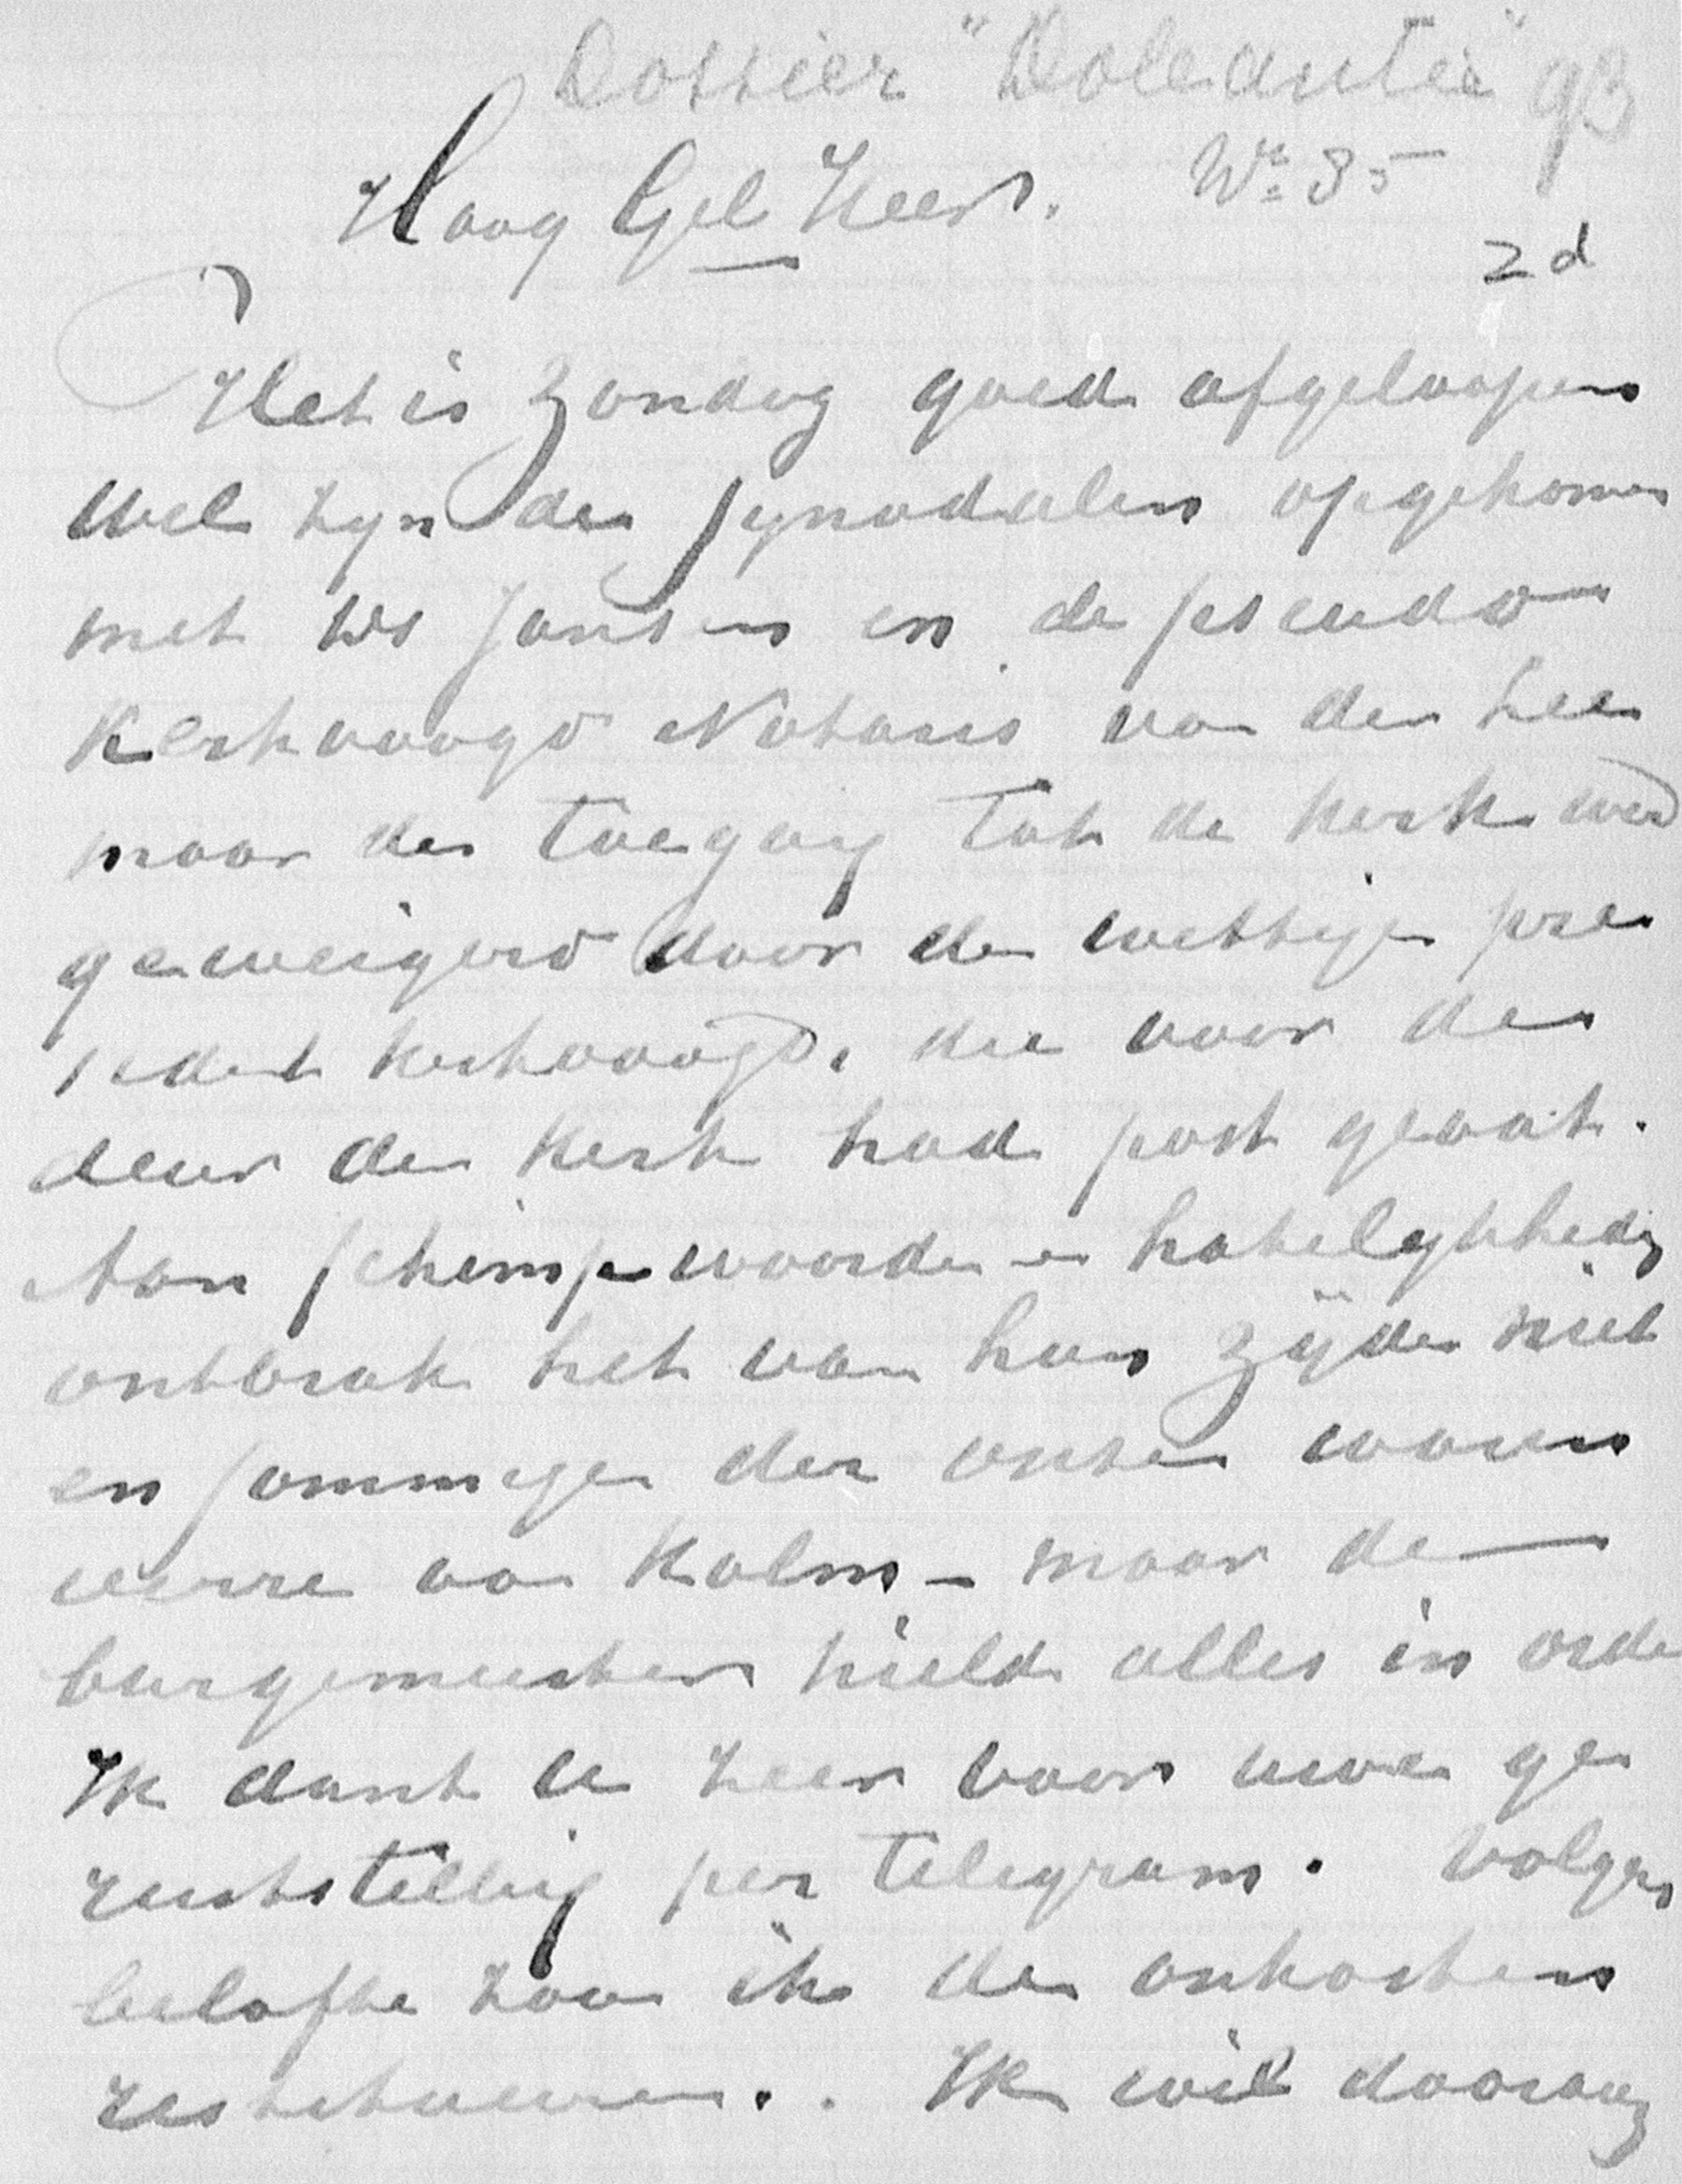 Dossier "Doleantie" 93
Hoog Gel Heer. No 35
2d
Het is Zondag goed afgeloopen
Wel zyn de synodalen opgekomen
met Ds Jansen en de pseudo
Kerkvoogd Notaris van der Lee
maar de toegang tot de kerk werd
geweigerd door de wettige pre
sident kerkvoogd, die voor de
deur der kerk had post gevat.
Aan schimpwoorden en hatelykheden
ontbrak het van hun zijde niet
en sommige der onzen waren
verre van kalm – maar de
burgemeester hield alles in orde
Ik dank U zeer voor uwe ge
ruststelling per telegram. Volgens
belofte zou ik de onkosten
restitueeren. Ik wil daarom